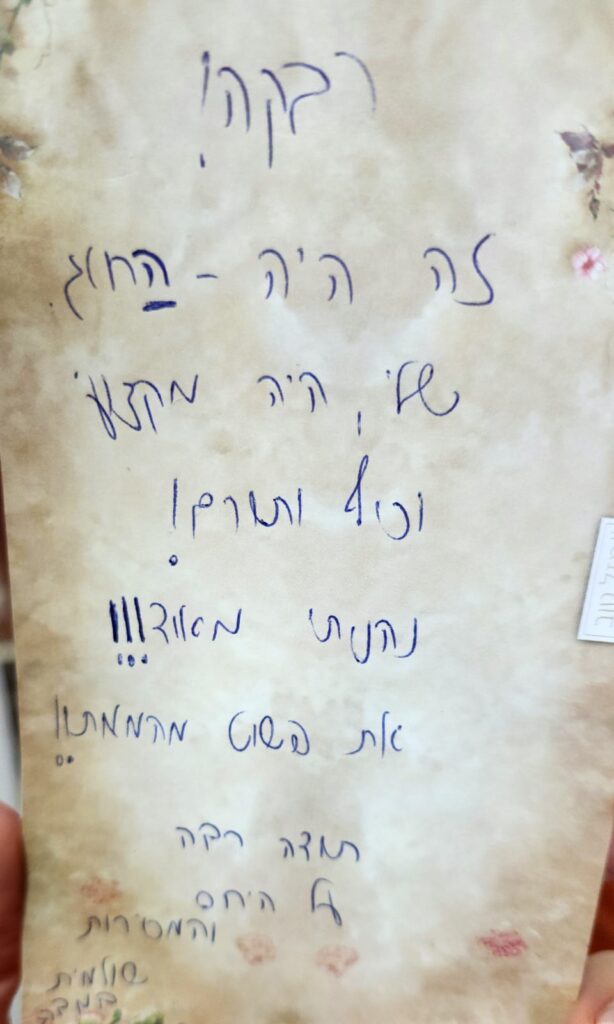 רבקה!
זה היה - החוג
שלי, היה מקצועי
וכיף ותורם!
נהניתי מאוד!!!
את פשוט מהממת!!
תודה רבה
על היחס
והמסירות
שולמית